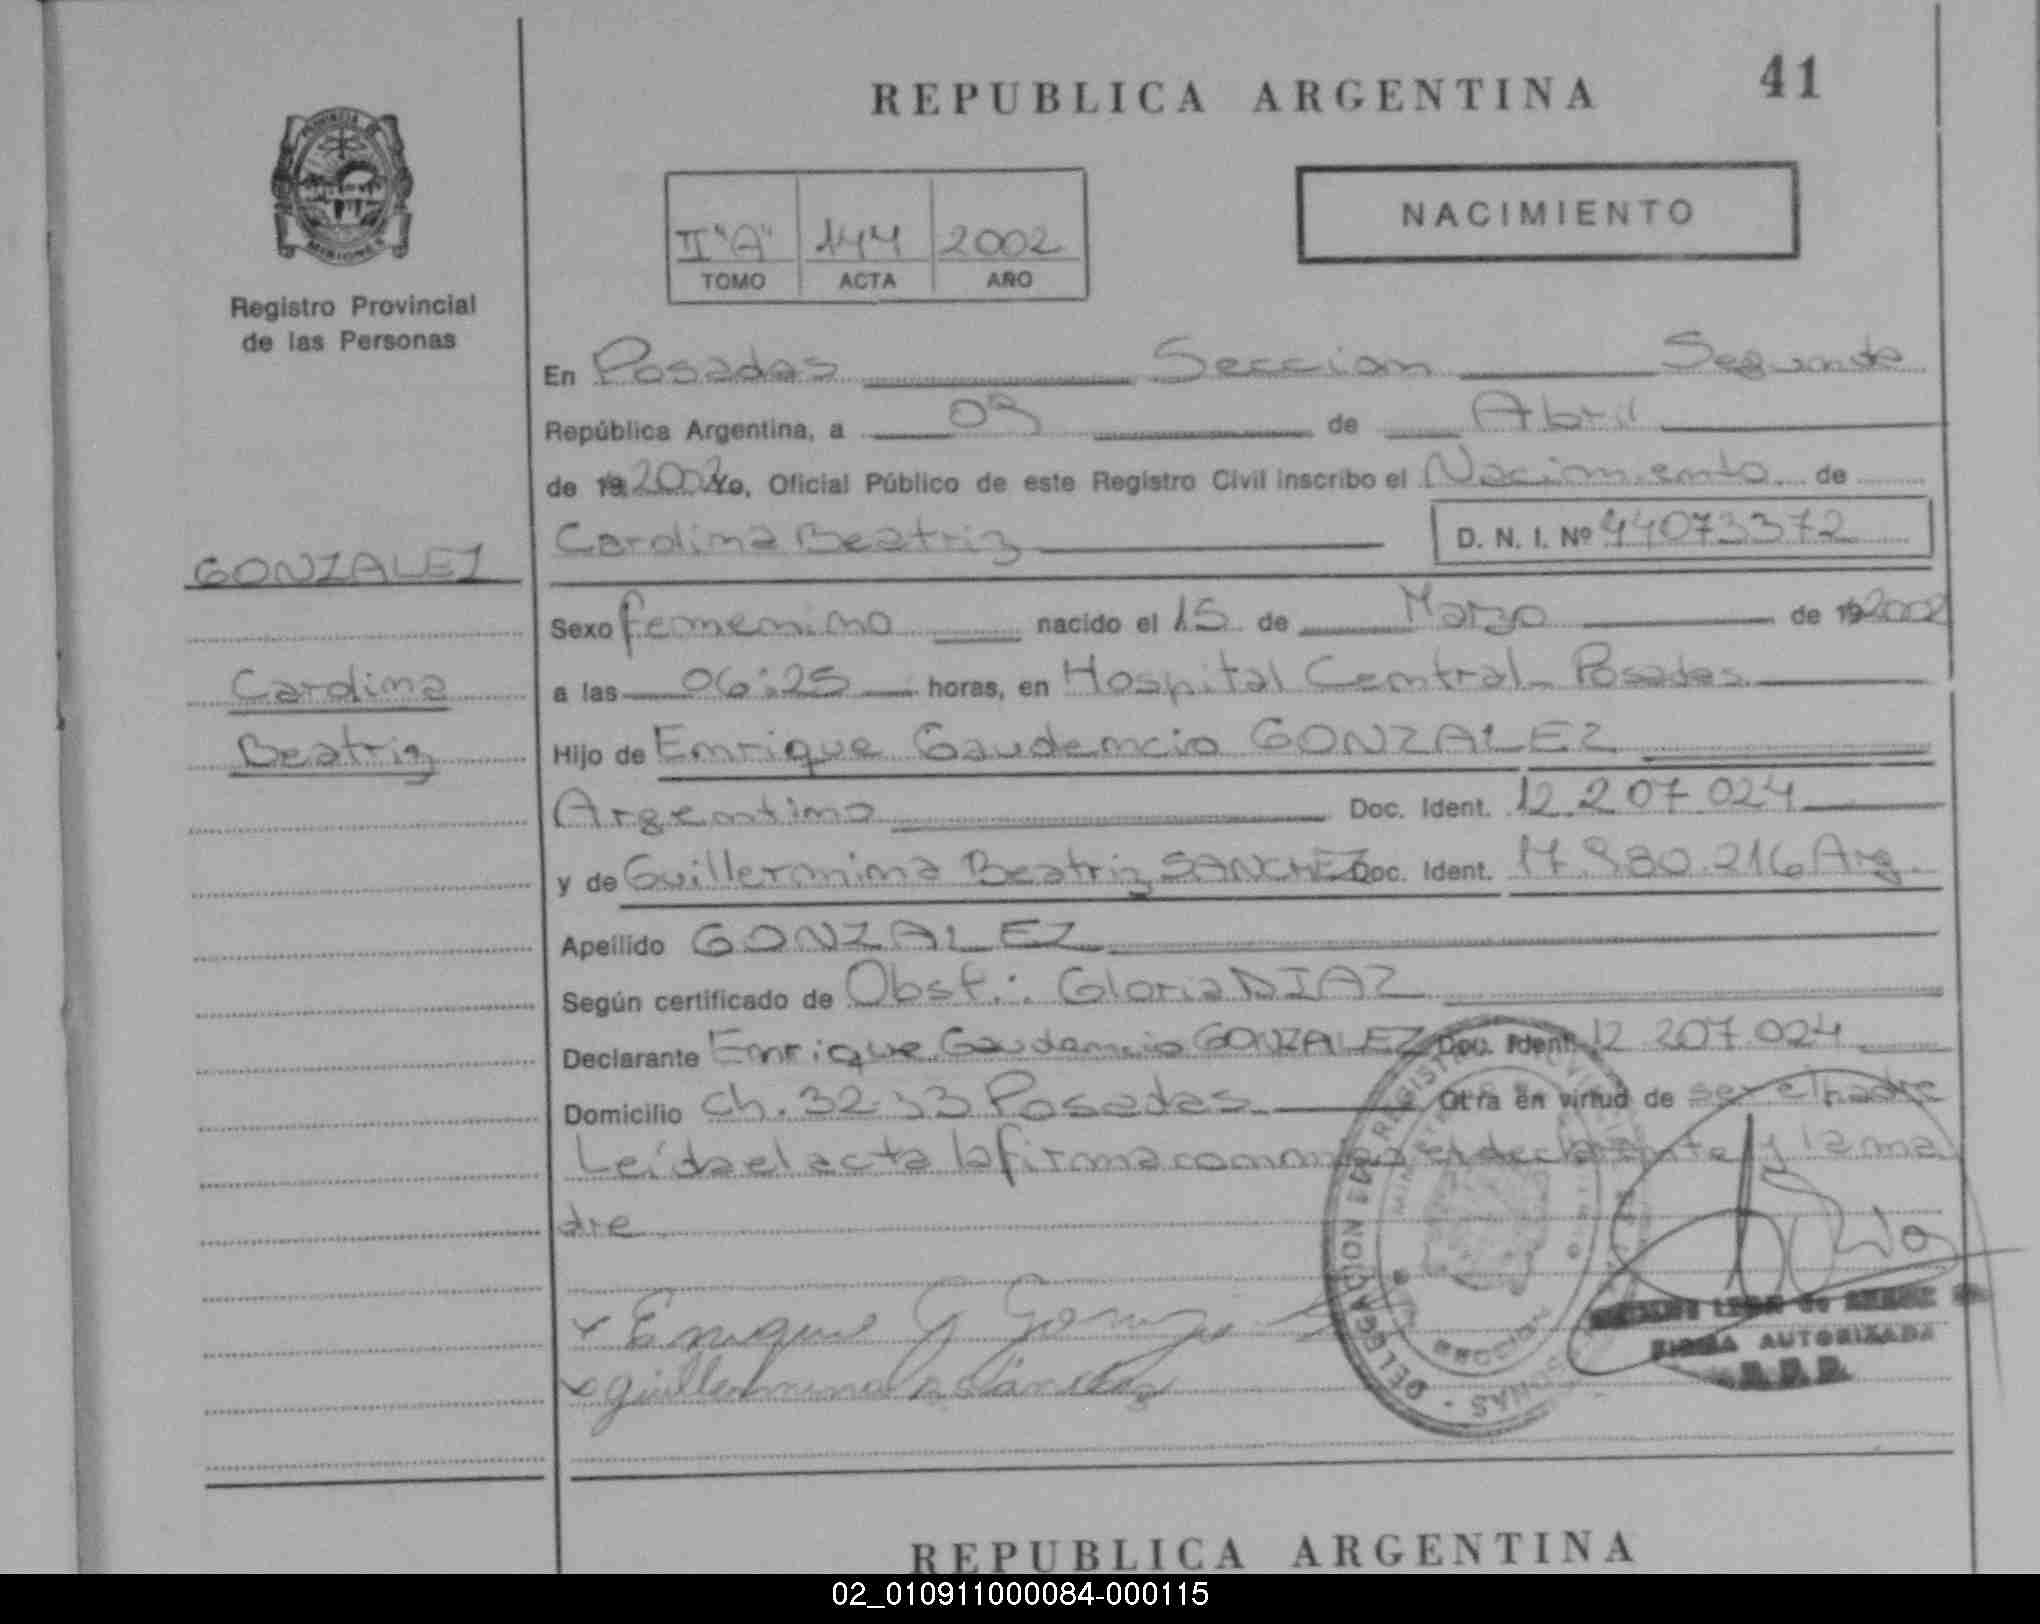 REPUBLICA ARGENTINA
41
PROVINCIA DE
MISIONES
Registro Provincial
de las Personas
II "A" 144 2002
TOMO ACTA AÑO
NACIMIENTO
En Posadas Sección Segunda
República Argentina, a 09 de Abril
de 19 2002 Yo, Oficial Público de este Registro Civil inscribo el Nacimiento de
Carolina Beatriz D. N. I. Nº 44073372
GONZALEZ
Carolina
Beatriz
Sexo femenino nacido el 15 de Marzo de 19 2002
a las 06:25 horas, en Hospital Central - Posadas
Hijo de Enrique Gaudencio GONZALEZ
Argentino Doc. Ident. 12 207 024
y de Guillermina Beatriz SANCHEZ Doc. Ident. 17.980.216 Arg.
Apellido GONZALEZ
Según certificado de Obst.: Gloria DIAZ
Declarante Enrique Gaudencio GONZALEZ Doc. Ident. 12 207 024
Domicilio Ch. 32-33 Posadas Obra en virtud de ser el padre
Leída el acta la firma conmigo el declarante y la ma
dre
Enrique G Gonzalez
Guillermina B Sánchez
DELEGACION
SECCION
FIRMA AUTORIZADA
REPUBLICA ARGENTINA
02_010911000084-000115